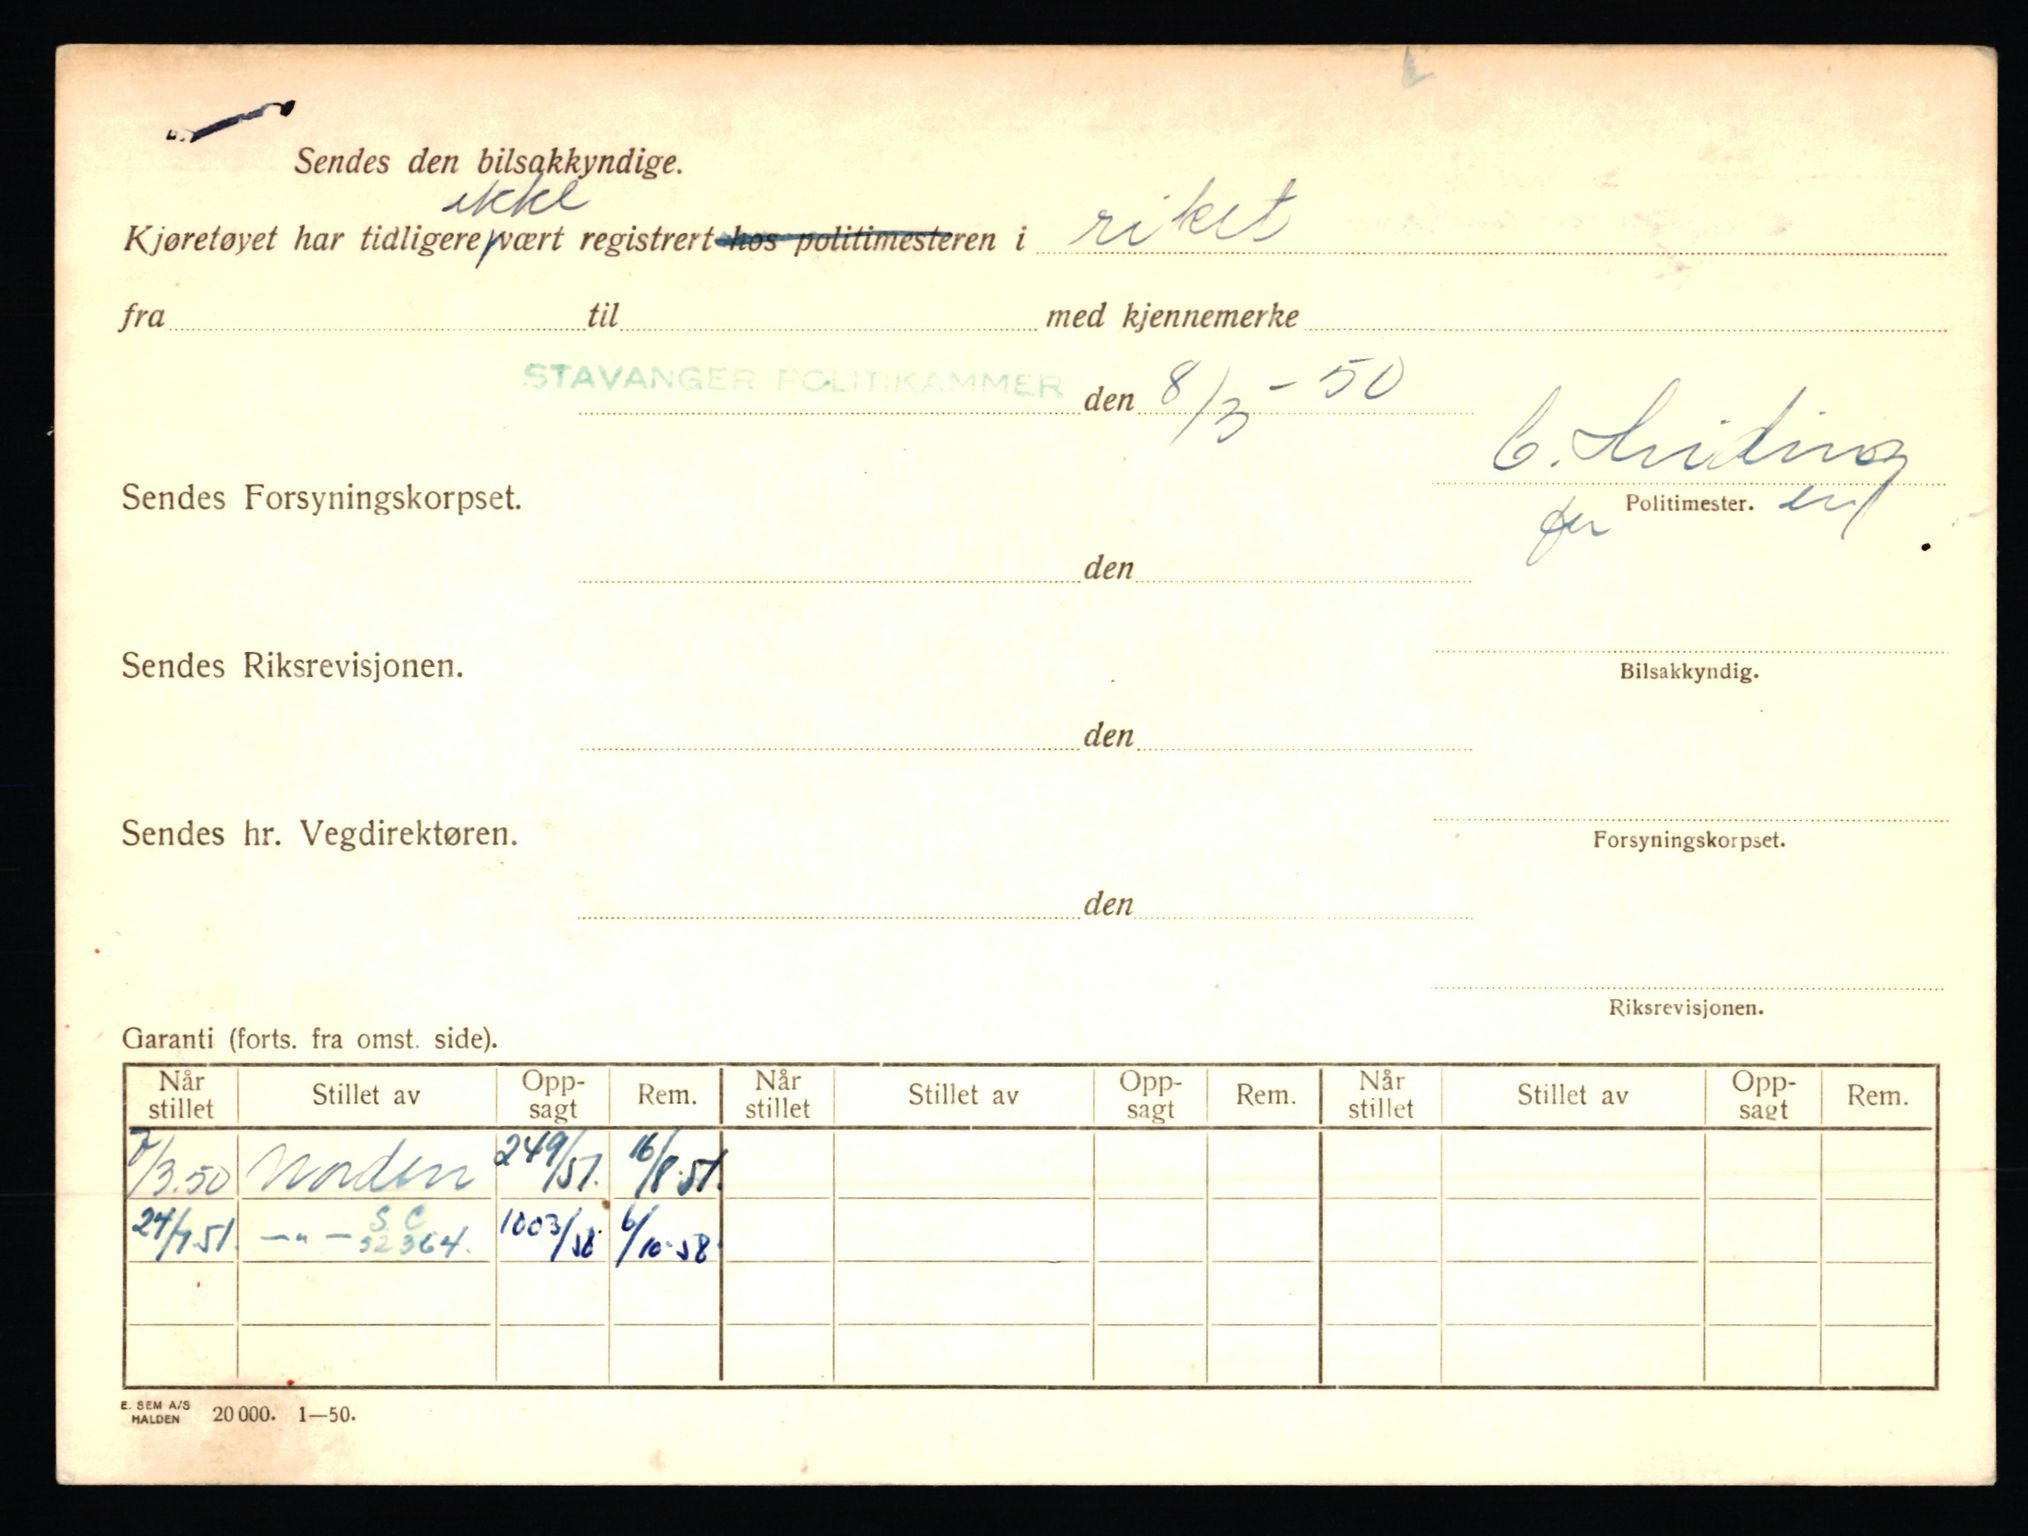 Sendes den bilsakkyndige.
ikke
Kjøretøyet har tidligere vært registrert hos politimesteren i riket
fra til med kjennemerke
STAVANGER POLITIKAMMER den 8/3 - 50
Sendes Forsyningskorpset.
Politimester.
den
Sendes Riksrevisjonen.
Bilsakkyndig.
den
Sendes hr. Vegdirektøren.
Forsyningskorpset.
den
Riksrevisjonen.
Garanti (forts. fra omst. side).
Når stillet Stillet av Opp-sagt Rem. Når stillet Stillet av Opp-sagt Rem. Når stillet Stillet av Opp-sagt Rem.
7/3.50 Norden 249/51. 16/8.51.
24/7.51. — " — S.C 52364. 1003/58. 6/10.58
E. SEM A/S
HALDEN 20 000. 1—50.